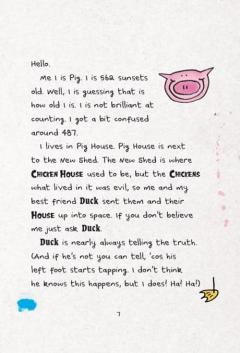 Hello.
Me I is Pig. I is 562 sunsets
old. Well, I is guessing that is
how old I is. I is not brilliant at
counting. I got a bit confused
around 487.
I lives in Pig House. Pig House is next
to the New Shed. The New Shed is where
CHICKEN HOUSE used to be, but the CHICKENS
what lived in it was evil, so me and my
best friend DUCK sent them and their
HOUSE up into space. If you don't believe
me just ask DUCK.
DUCK is nearly always telling the truth.
(And if he's not you can tell, 'cos his
left foot starts tapping. I don't think
he knows this happens, but I does! Ha! Ha!)
7